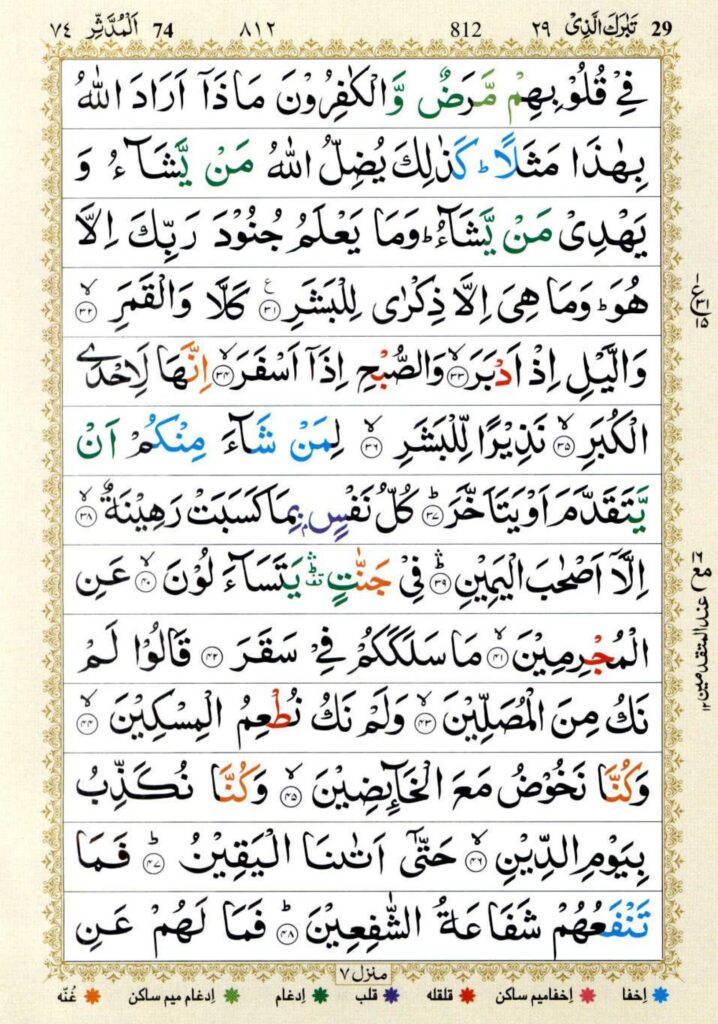 29 تَبٰرَكَ الَّذِىْ ٢٩ 812 ٨١٢ 74 اَلْمُدَّثِّر ٧٤
فِيْ قُلُوْبِهِمْ مَّرَضٌ وَّالْكٰفِرُوْنَ مَاذَاۤ اَرَادَ اللّٰهُ
بِهٰذَا مَثَلًا ؕ كَذٰلِكَ يُضِلُّ اللّٰهُ مَنْ يَّشَآءُ وَ
يَهْدِىْ مَنْ يَّشَآءُ ؕ وَمَا يَعْلَمُ جُنُوْدَ رَبِّكَ اِلَّا
هُوَ ؕ وَمَا هِىَ اِلَّا ذِكْرٰى لِلْبَشَرِ ﴿٣١﴾ كَلَّا وَالْقَمَرِ ۙ﴿٣٢﴾
وَالَّيْلِ اِذْ اَدْبَرَ ۙ﴿٣٣﴾ وَالصُّبْحِ اِذَاۤ اَسْفَرَ ۙ﴿٣٤﴾ اِنَّهَا لَاِحْدَى
الْكُبَرِ ۙ﴿٣٥﴾ نَذِيْرًا لِّلْبَشَرِ ۙ﴿٣٦﴾ لِمَنْ شَآءَ مِنْكُمْ اَنْ
يَّتَقَدَّمَ اَوْ يَتَاَخَّرَ ؕ﴿٣٧﴾ كُلُّ نَفْسٍۭ بِمَا كَسَبَتْ رَهِيْنَةٌ ۙ﴿٣٨﴾
اِلَّاۤ اَصْحٰبَ الْيَمِيْنِ ۛؕ﴿٣٩﴾ فِيْ جَنّٰتٍ ۛؕ يَتَسَآءَلُوْنَ ۙ﴿٤٠﴾ عَنِ
الْمُجْرِمِيْنَ ۙ﴿٤١﴾ مَا سَلَكَكُمْ فِيْ سَقَرَ ﴿٤٢﴾ قَالُوْا لَمْ
نَكُ مِنَ الْمُصَلِّيْنَ ۙ﴿٤٣﴾ وَلَمْ نَكُ نُطْعِمُ الْمِسْكِيْنَ ۙ﴿٤٤﴾
وَكُنَّا نَخُوْضُ مَعَ الْخَآئِضِيْنَ ۙ﴿٤٥﴾ وَكُنَّا نُكَذِّبُ
بِيَوْمِ الدِّيْنِ ۙ﴿٤٦﴾ حَتّٰىۤ اَتٰٮنَا الْيَقِيْنُ ؕ﴿٤٧﴾ فَمَا
تَنْفَعُهُمْ شَفَاعَةُ الشّٰفِعِيْنَ ؕ﴿٤٨﴾ فَمَا لَهُمْ عَنِ
منزل ٧
اِخفا اِخفامیم ساکن قلقله قلب اِدغام اِدغام میم ساکن غُنّه
عند المتقدمين ١٢